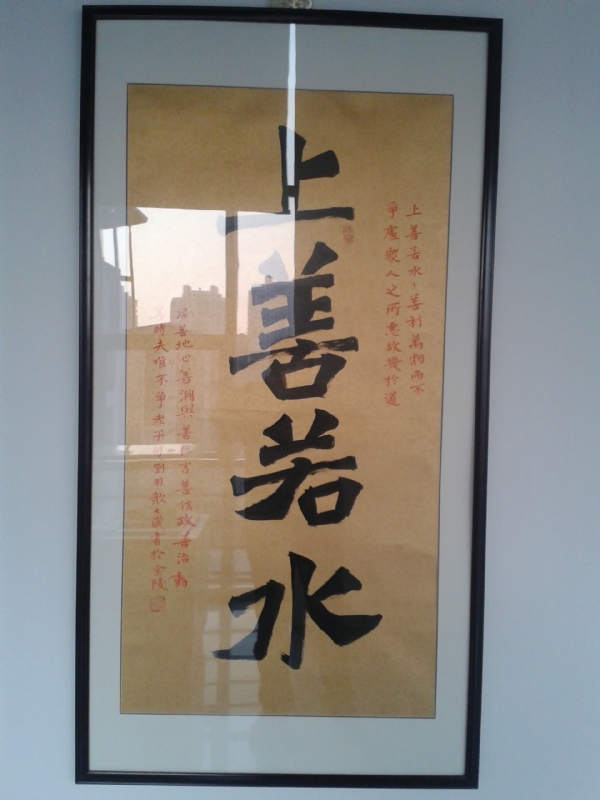 上善若水〻善利萬物而不
爭處衆人之所惡故幾於道
上善若水
居善地心善淵與善仁言善信政善治動
善時夫唯不爭老子 書於金陵